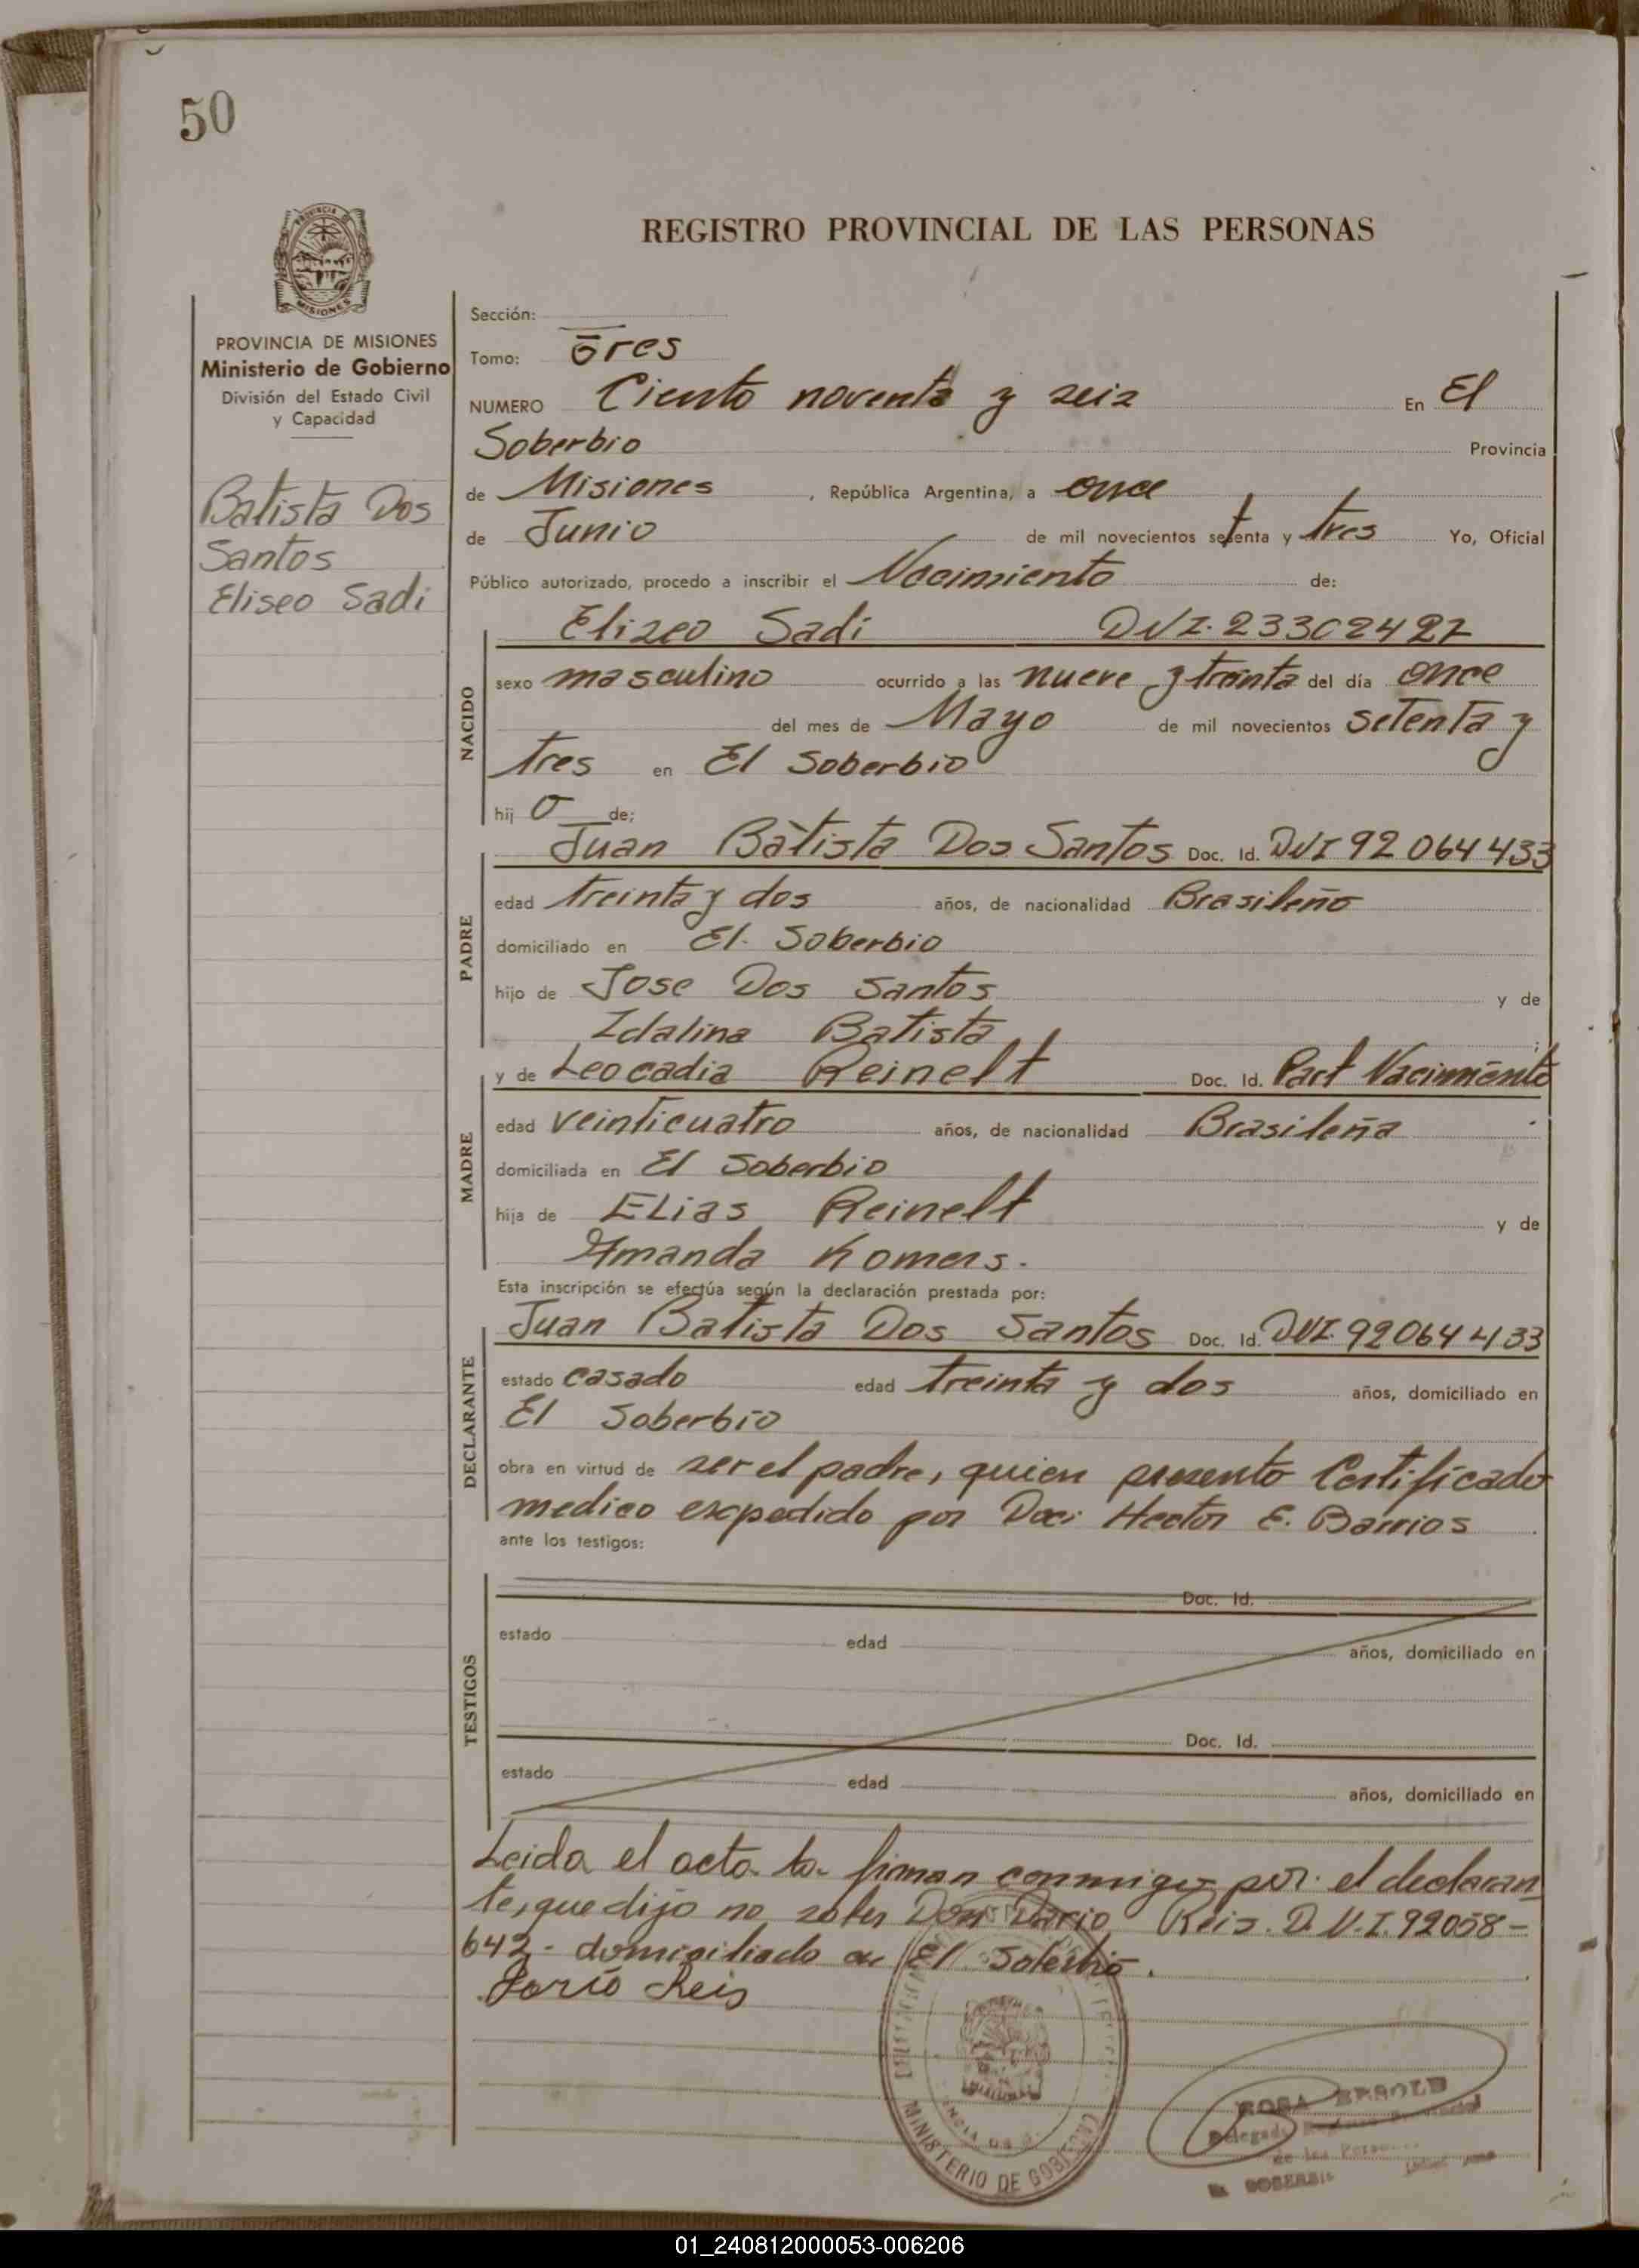 50
PROVINCIA DE MISIONES
Ministerio de Gobierno
División del Estado Civil
y Capacidad
Batista Dos
Santos
Eliseo Sadi
REGISTRO PROVINCIAL DE LAS PERSONAS
Sección:
Tomo: Tres
NUMERO Ciento noventa y seis En El
Soberbio Provincia
de Misiones, República Argentina, a once
de Junio de mil novecientos setenta y tres Yo, Oficial
Público autorizado, procedo a inscribir el Nacimiento de:
NACIDO
Eliseo Sadi DNI. 23302427
sexo masculino ocurrido a las nueve y treinta del día once
del mes de Mayo de mil novecientos setenta y
tres en El Soberbio
hijo de;
PADRE
Juan Batista Dos Santos Doc. Id. DNI 92 064 433
edad treinta y dos años, de nacionalidad Brasileño
domiciliado en El. Soberbio
hijo de Jose Dos Santos y de
Idalina Batista ;
MADRE
y de Leocadia Reinelt Doc. Id. Part Nacimiento
edad veinticuatro años, de nacionalidad Brasileña
domiciliada en El Soberbio
hija de Elias Reinelt y de
Amanda Komers.
Esta inscripción se efectúa según la declaración prestada por:
DECLARANTE
Juan Batista Dos Santos Doc. Id. DNI. 92064433
estado casado edad treinta y dos años, domiciliado en
El Soberbio
obra en virtud de ser el padre, quien presento Certificado
medico expedido por Doc: Hector E. Barrios
ante los testigos:
TESTIGOS
Doc. Id.
estado edad años, domiciliado en
Doc. Id.
estado edad años, domiciliado en
Leida el acta la firman conmigo por el declaran
te, que dijo no saber Don Dario Reis. D.N.I. 92058-
642- domiciliado en El Soberbio.
Dario Reis
MINISTERIO DE GOBIERNO
ROSA
Delegado
de las
El SOBERBIO
01_240812000053-006206